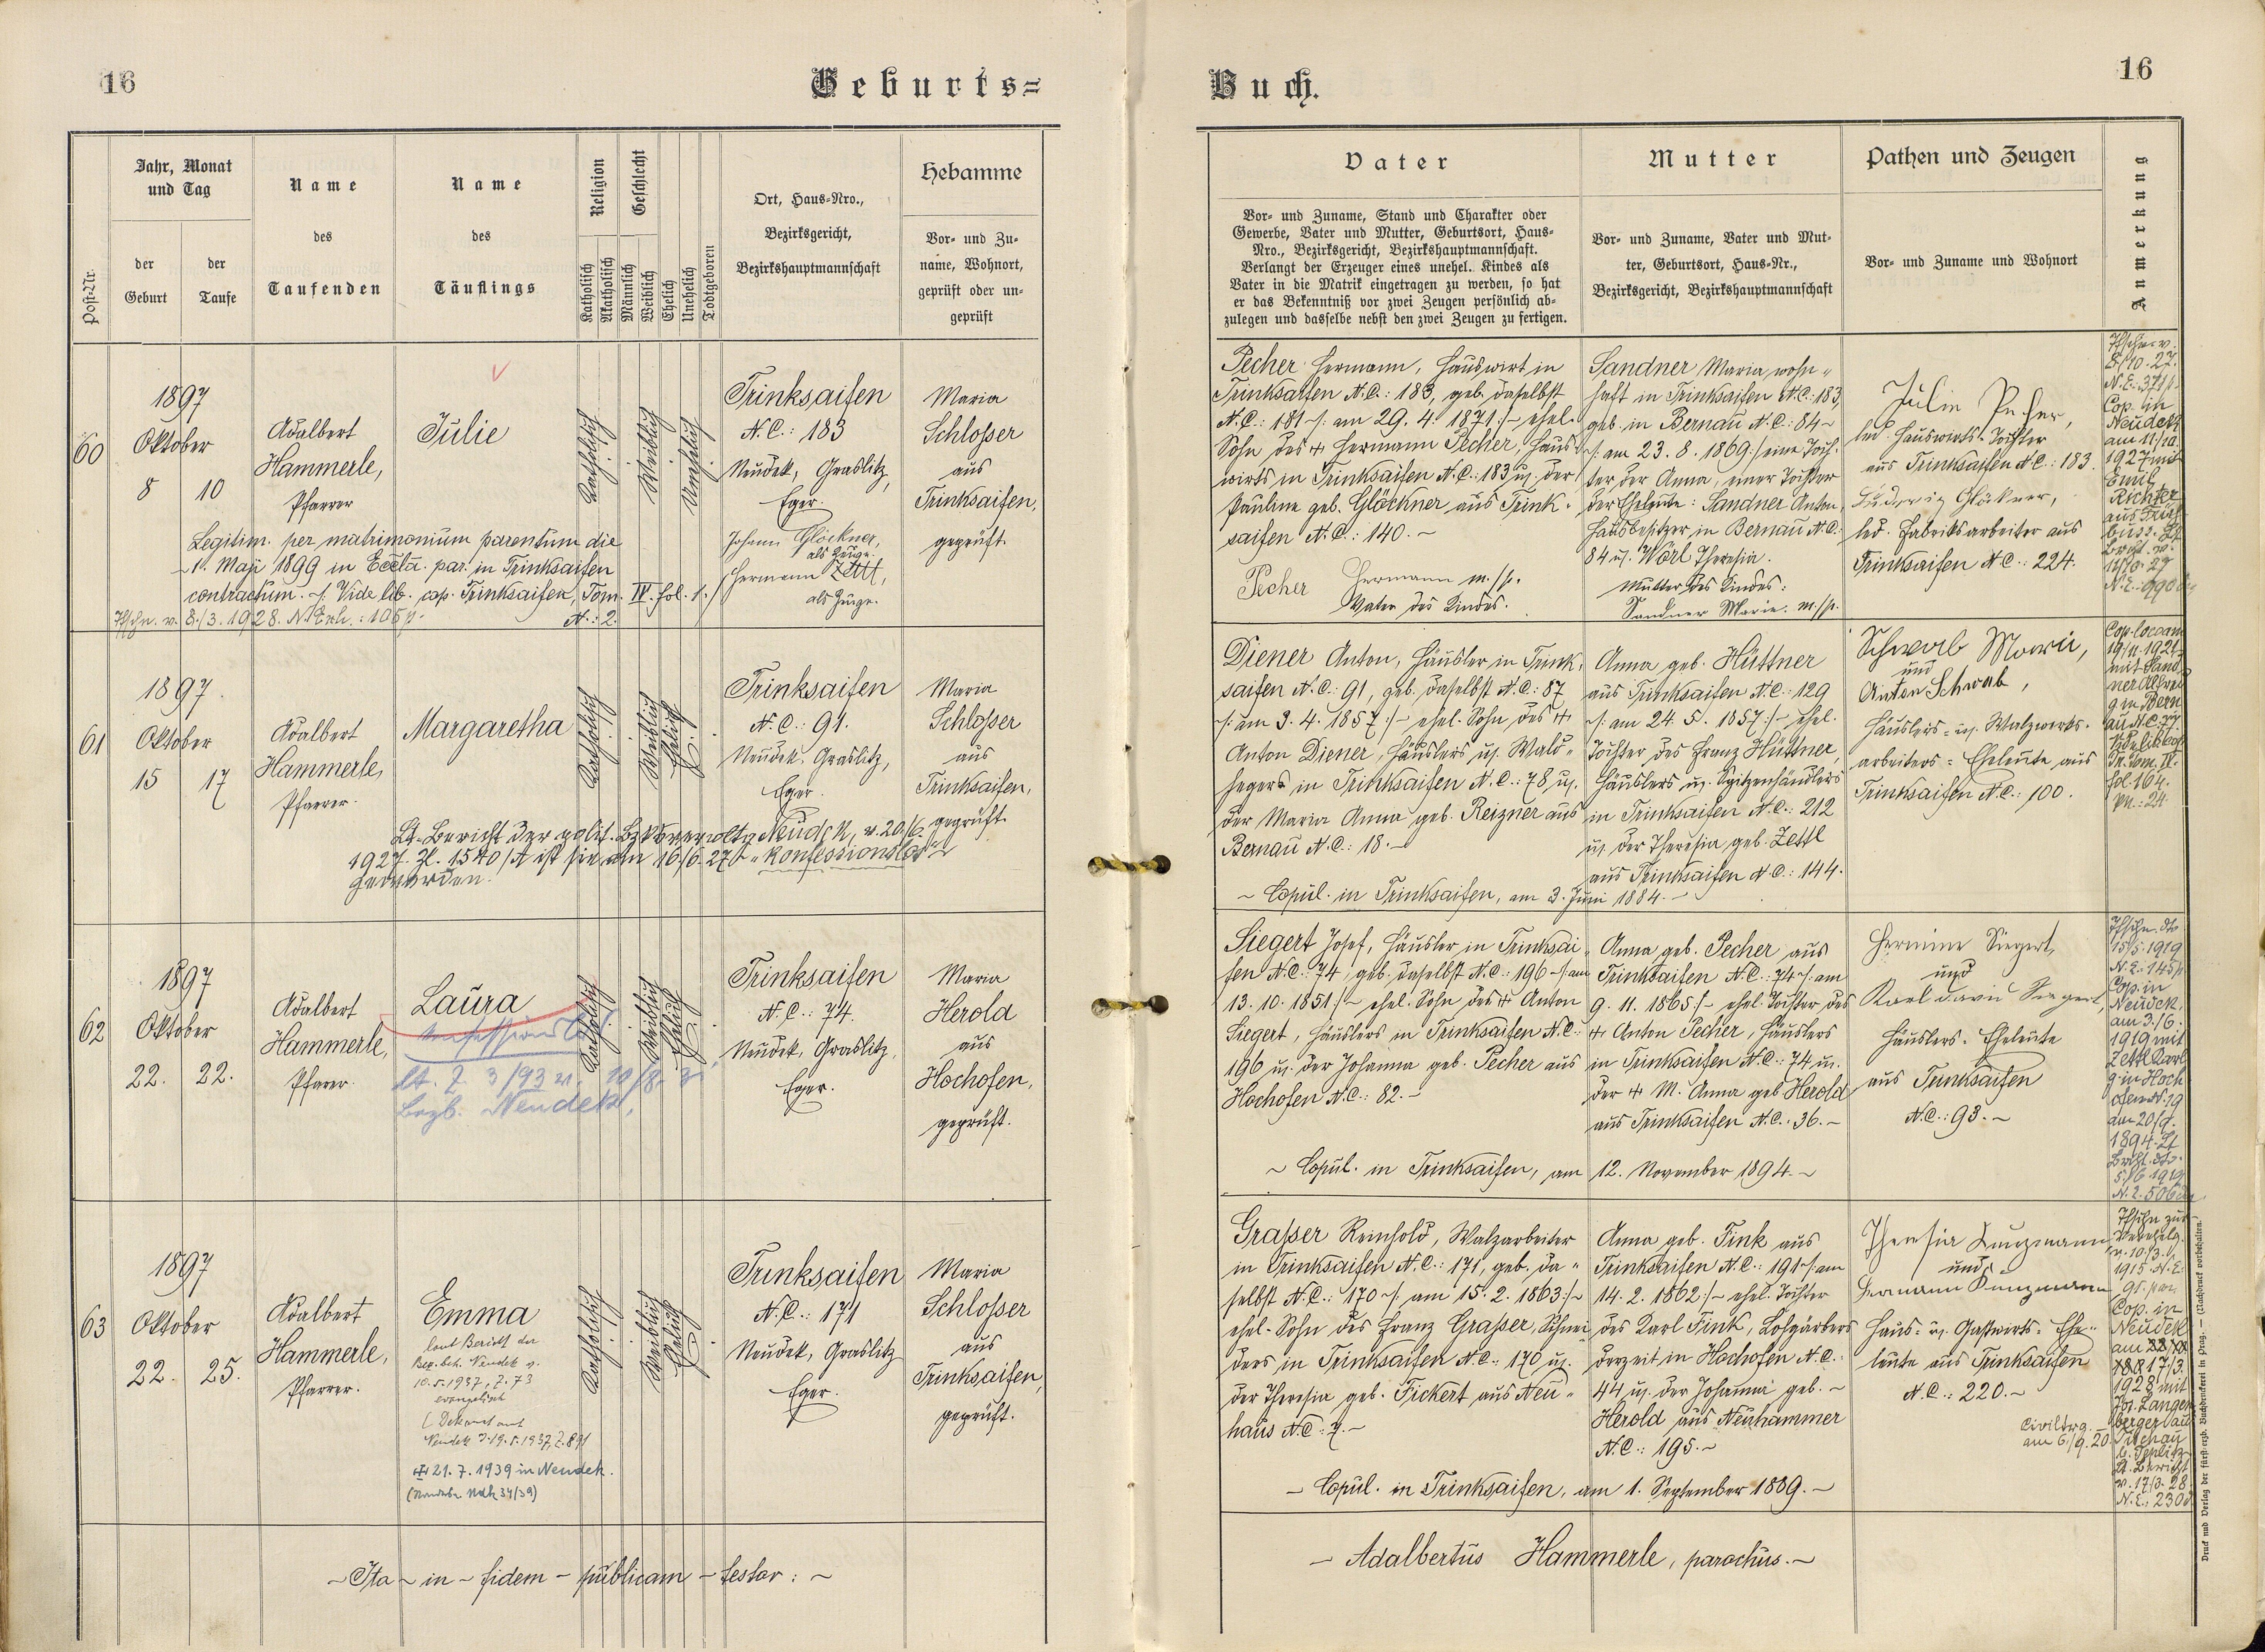 16
Geburts=
Jahr, Monat
und Tag
Name
Name
Religion
Geschlecht
Hebamme
Ort, Haus=Nro.,
Bezirksgericht,
Bezirkshauptmannschaft
des
des
Vor= und Zu=
name, Wohnort,
geprüft oder un=
geprüft
Post=Nr.
der
Geburt
der
Taufe
Taufenden
Täuflings
Katholisch
Akatholisch
Männlich
Weiblich
Ehelich
Unehelich
Todtgeboren
60
1897
Oktober
8
10
Adalbert
Hammerle,
Pfarrer
Julie
Katholisch
Weiblich
Unehelich
Trinksaifen
N.C.: 183
Neudek, Graslitz,
Eger.
Johann Glöckner,
als Zeuge.
Hermann Zettl,
als Zeuge.
Maria
Schlosser
aus
Trinksaifen,
geprüft.
Legitim. per matrimonium parentum die
1. Maji 1899 in Eccla. par. in Trinksaifen
contractum. Vide lib. cop. Trinksaifen, Tom. IV. fol. 1.
N.: 2.
61
1897.
Oktober
15
17
Adalbert
Hammerle,
Pfarrer.
Margaretha
Katholisch
Weiblich
Ehelich
Trinksaifen
N.C.: 91.
Neudek, Graslitz,
Eger.
Maria
Schlosser
aus
Trinksaifen,
geprüft.
Lt. Bericht der polit. Neudek, v. 20/6.
1927. Zl. 1540/A ist sie am 16/6.27 "konfessionslos"
geworden.
62
1897
Oktober
22.
22.
Adalbert
Hammerle,
Pfarrer.
Laura
konfessionslos
lt. Z. 3/93
Bezb. Neudek,
Katholisch
Weiblich
Ehelich
Trinksaifen
N.C.: 74.
Neudek, Graslitz,
Eger.
Maria
Herold
aus
Hochofen,
geprüft.
63
1897
Oktober
22.
25.
Adalbert
Hammerle,
Pfarrer.
Emma
laut Bericht der
Bez. beh. Neudek v.
10.5.1937, Z. 73
evangelisch
21.7.1939 in Neudek.
Katholisch
Weiblich
Ehelich
Trinksaifen
N.C.: 171
Neudek, Graslitz
Eger.
Maria
Schlosser
aus
Trinksaifen,
geprüft.
~ Ita ~ in ~ fidem ~ publicam ~ testor: ~
Buch.
16
Vater
Mutter
Pathen und Zeugen
Anmerkung
Vor= und Zuname, Stand und Charakter oder
Gewerbe, Vater und Mutter, Geburtsort, Haus=
Nro., Bezirksgericht, Bezirkshauptmannschaft.
Verlangt der Erzeuger eines unehel. Kindes als
Vater in die Matrik eingetragen zu werden, so hat
er das Bekenntniß vor zwei Zeugen persönlich ab=
zulegen und dasselbe nebst den zwei Zeugen zu fertigen.
Vor= und Zuname, Vater und Mut=
ter, Geburtsort, Haus=Nr.,
Bezirksgericht, Bezirkshauptmannschaft
Vor= und Zuname und Wohnort
Pecher Hermann, Hauswirt in
Trinksaifen N.C.: 183, geb. daselbst
N.C.: 181 /: am 29. 4. 1871 :/ ehel.
Sohn des + Hermann Pecher, Haus=
wirts in Trinksaifen N.C.: 183 u. der
Pauline geb. Glöckner aus Trink=
saifen N.C.: 140. ~
Pecher Hermann m./p.
Vater des Kindes.
Sandner Maria, wohn=
haft in Trinksaifen N.C.: 183,
geb. in Bernau N.C.: 84
/: am 23. 8. 1869 :/ eine Toch=
ter der Anna, einer Tochter
der Eheleute: Sandner Anton,
Hausbesitzer in Bernau N.C.:
84 u. Wörl Theresia.
Mutter des Kindes:
Sandner Marie. m./p.
Julie Pecher,
led. Hauswirts-Tochter
aus Trinksaifen N.C.: 183.
Glöckner,
led. Fabriksarbeiter aus
Trinksaifen N.C.: 224.
Cop. in
Neudek
1927 mit
Emil
Richter
Diener Anton, Häusler in Trink=
saifen N.C.: 91, geb. daselbst N.C.: 87
/: am 3. 4. 1857 :/ ehel. Sohn des +
Anton Diener, Häuslers u. Wald=
hegers in Trinksaifen N.C.: 78 u.
der Maria Anna geb. Reizner aus
Bernau N.C.: 18. ~
~ Copul. in Trinksaifen, am 3. Juni 1884. ~
Anna geb. Hüttner
aus Trinksaifen N.C.: 129
/: am 24. 5. 1857 :/ ehel.
Tochter des Franz Hüttner,
Häuslers u. Spitzenhändlers
in Trinksaifen N.C.: 212
u. der Theresia geb. Zettl
aus Trinksaifen N.C.: 144.
Schwab Marie,
und
Anton Schwab,
Häuslers= u. Walzwerks=
arbeiters=Eheleute aus
Trinksaifen N.C.: 100.
fol. 164.
Siegert Josef, Häusler in Trinksai=
fen N.C.: 74, geb. daselbst N.C.: 196 /: am
13. 10. 1851 :/ ehel. Sohn des + Anton
Siegert, Häuslers in Trinksaifen N.C.:
196 u. der Johanna geb. Pecher aus
Hochofen N.C.: 82. ~
~ Copul. in Trinksaifen, am 12. November 1894. ~
Anna geb. Pecher aus
Trinksaifen N.C.: 74 /: am
9. 11. 1865 :/ ehel. Tochter des
+ Anton Pecher, Häuslers
in Trinksaifen N.C.: 74 u.
der + M. Anna geb. Herold
aus Trinksaifen N.C.: 36. ~
Hermine Siegert,
und
Karl David Siegert,
Häuslers=Eheleute
aus Trinksaifen
N.C.: 93. ~
Cop. in
Neudek
am 3./6.
1919 mit
Zettl Karl
Grasser Reinhold, Walzarbeiter
in Trinksaifen N.C.: 171, geb. da=
selbst N.C.: 170 /: am 15. 2. 1863 :/
ehel. Sohn des Franz Grasser, Schnei=
ders in Trinksaifen N.C.: 170 u.
der Theresia geb. Fickert aus Neu=
haus N.C.: 7. ~
~ Copul. in Trinksaifen, am 1. September 1889. ~
Anna geb. Fink aus
Trinksaifen N.C.: 191 /: am
14. 2. 1862 :/ ehel. Tochter
des Karl Fink, Lohgärbers
derzeit in Hochofen N.C.:
44 u. der Johanna geb. ~
Herold aus Neuhammer
N.C.: 195. ~
Theresia Kunzmann
und
Hermann Kunzmann
Haus= u. Gastwirts=Ehe=
leute aus Trinksaifen
N.C.: 220. ~
Cop. in
Neudek
1928 mit
~ Adalbertus Hammerle, parochus. ~
Druck und Verlag der fürst-erzb. Buchdruckerei in Prag. — (Nachdruck vorbehalten.)